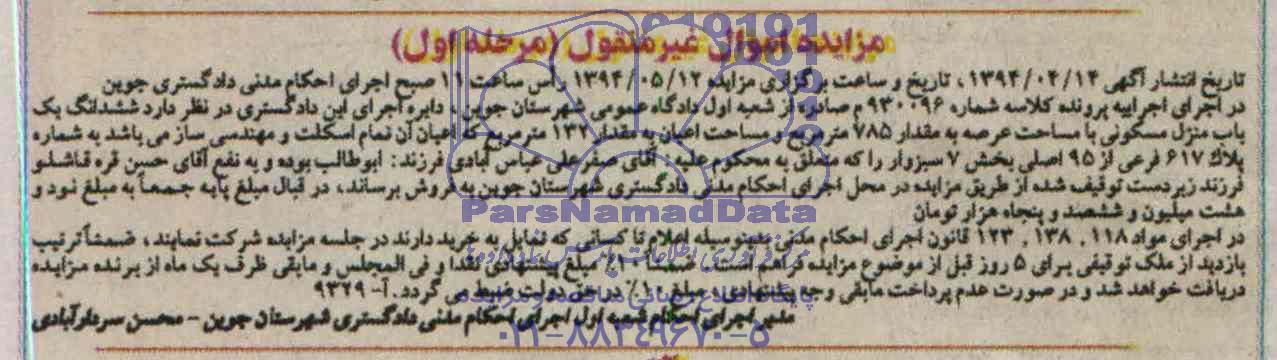 مزایده اموال غیرمنقول (مرحله اول)
تاریخ انتشار آگهی ۱۳۹۴/۰۴/۱۴، تاریخ و ساعت برگزاری مزایده ۱۳۹۴/۰۵/۱۲ رأس ساعت ۱۱ صبح اجرای احکام مدنی دادگستری جوین
در اجرای اجراییه پرونده کلاسه شماره ۹۳۰۰۹۶ م صادره از شعبه اول دادگاه عمومی شهرستان جوین، دایره اجرای این دادگستری در نظر دارد ششدانگ یک
باب منزل مسکونی با مساحت عرصه به مقدار ۷۸۵ مترمربع و مساحت اعیان به مقدار ۱۳۲ مترمربع که اعیان آن تمام اسکلت و مهندسی ساز می باشد به شماره
پلاک ۶۱۷ فرعی از ۹۵ اصلی بخش ۷ سبزوار را که متعلق به محکوم علیه، آقای صفرعلی عباس آبادی فرزند: ابوطالب بوده و به نفع آقای حسن قره قاشلو
فرزند زبردست توقیف شده از طریق مزایده در محل اجرای احکام مدنی دادگستری شهرستان جوین به فروش برساند، در قبال مبلغ پایه جمعاً به مبلغ نود و
هشت میلیون و ششصد و پنجاه هزار تومان
در اجرای مواد ۱۱۸، ۱۳۸، ۱۲۳ قانون اجرای احکام مدنی بدینوسیله اعلام تا کسانی که تمایل به خرید دارند در جلسه مزایده شرکت نمایند، ضمناً ترتیب
بازدید از ملک توقیفی برای ۵ روز قبل از موضوع مزایده فراهم است. ضمناً ۱۰٪ مبلغ پیشنهادی نقداً و فی المجلس و مابقی ظرف یک ماه از برنده مزایده
دریافت خواهد شد و در صورت عدم پرداخت مابقی وجه پیشنهادی، مبلغ ۱۰٪ در حق دولت ضبط می گردد. آ- ۹۳۲۹
مدیر اجرای احکام شعبه اول اجرای احکام مدنی دادگستری شهرستان جوین - محسن سردارآبادی
ParsNamadData
۰۲۱-۸۸۳۴۹۶۷۰-۵